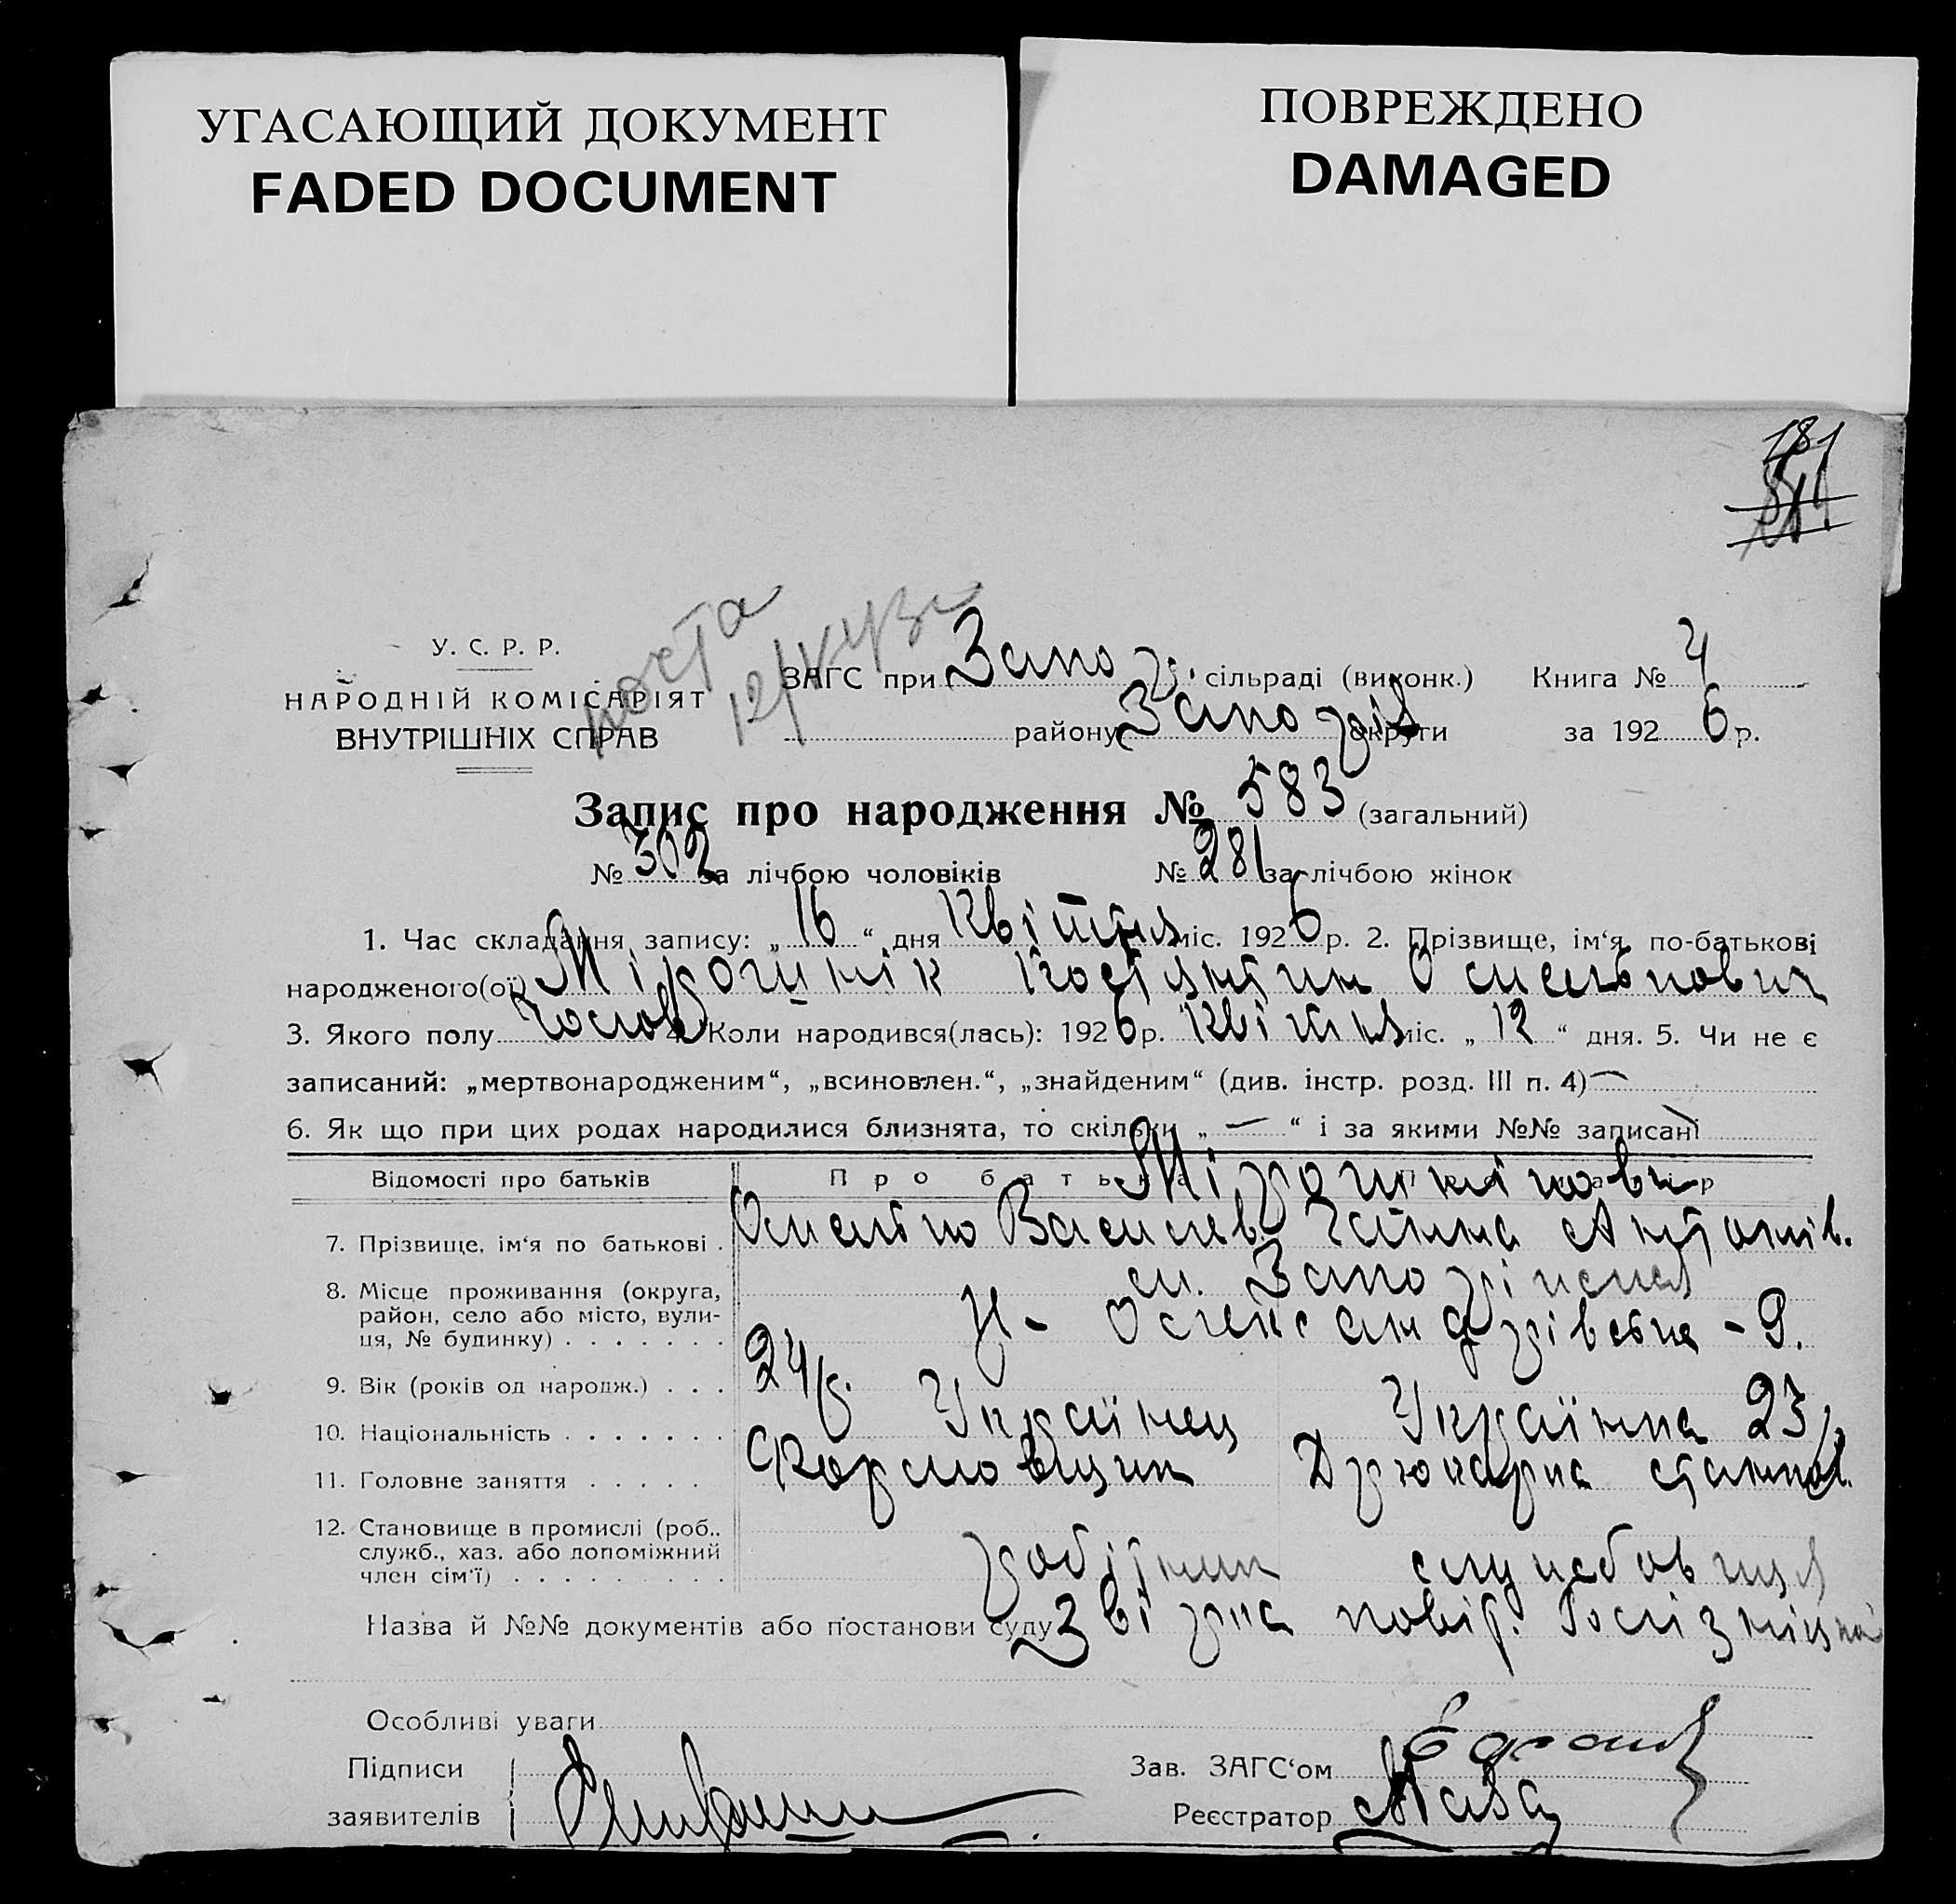 УГАСАЮЩИЙ ДОКУМЕНТ
FADED DOCUMENT
ПОВРЕЖДЕНО
DAMAGED
181
У. С. Р. Р.
НАРОДНІЙ КОМІСАРІЯТ
ВНУТРІШНІХ СПРАВ
ЗАГС при Запоріз. сільраді (виконк.) Книга № 4
району Запоріз округи за 1926 р.
Запис про народження № 583 (загальний)
№ 302 за лічбою чоловіків № 281 за лічбою жінок
1. Час складання запису: „ 16 “ дня Квітня міс. 1926 р. 2. Прізвище, ім‘я, по-батькові
народженого(ої) Мірошнік Костянтин Омельпович
3. Якого полу Чолов 4. Коли народився(лась): 1926 р. Квітня міс. „ 12 “ дня. 5. Чи не є
записаний: „мертвонародженим“, „всиновлен.“, „знайденим“ (див. інстр. розд. III п. 4) —
6. Як що при цих родах народилися близнята, то скільки „ — “ і за якими №№ записані
Відомості про батьків Про батька Про матір
Мірошнікови
7. Прізвище, ім‘я по батькові . Омелько Василев. Ганна Антонів.
8. Місце проживання (округа,
район, село або місто, вули-
ця, № будинку) . . . . . . .
м. Запоріжжя
Н- Олександрівська - 9.
9. Вік (років од народж.) . . . 24 р. 23 р.
10. Національність . . . . . . . Українец Українка
11. Головне заняття . . . . . Формовщик Друкарка
12. Становище в промислі (роб.,
служб., хаз. або допоміжний
член сім‘ї) . . . . . . . . .
робітник службовиця
Назва й №№ документів або постанови суду Звірка повір.
Особливі уваги
Підписи
заявителів
Зав. ЗАГС‘ом
Реєстратор